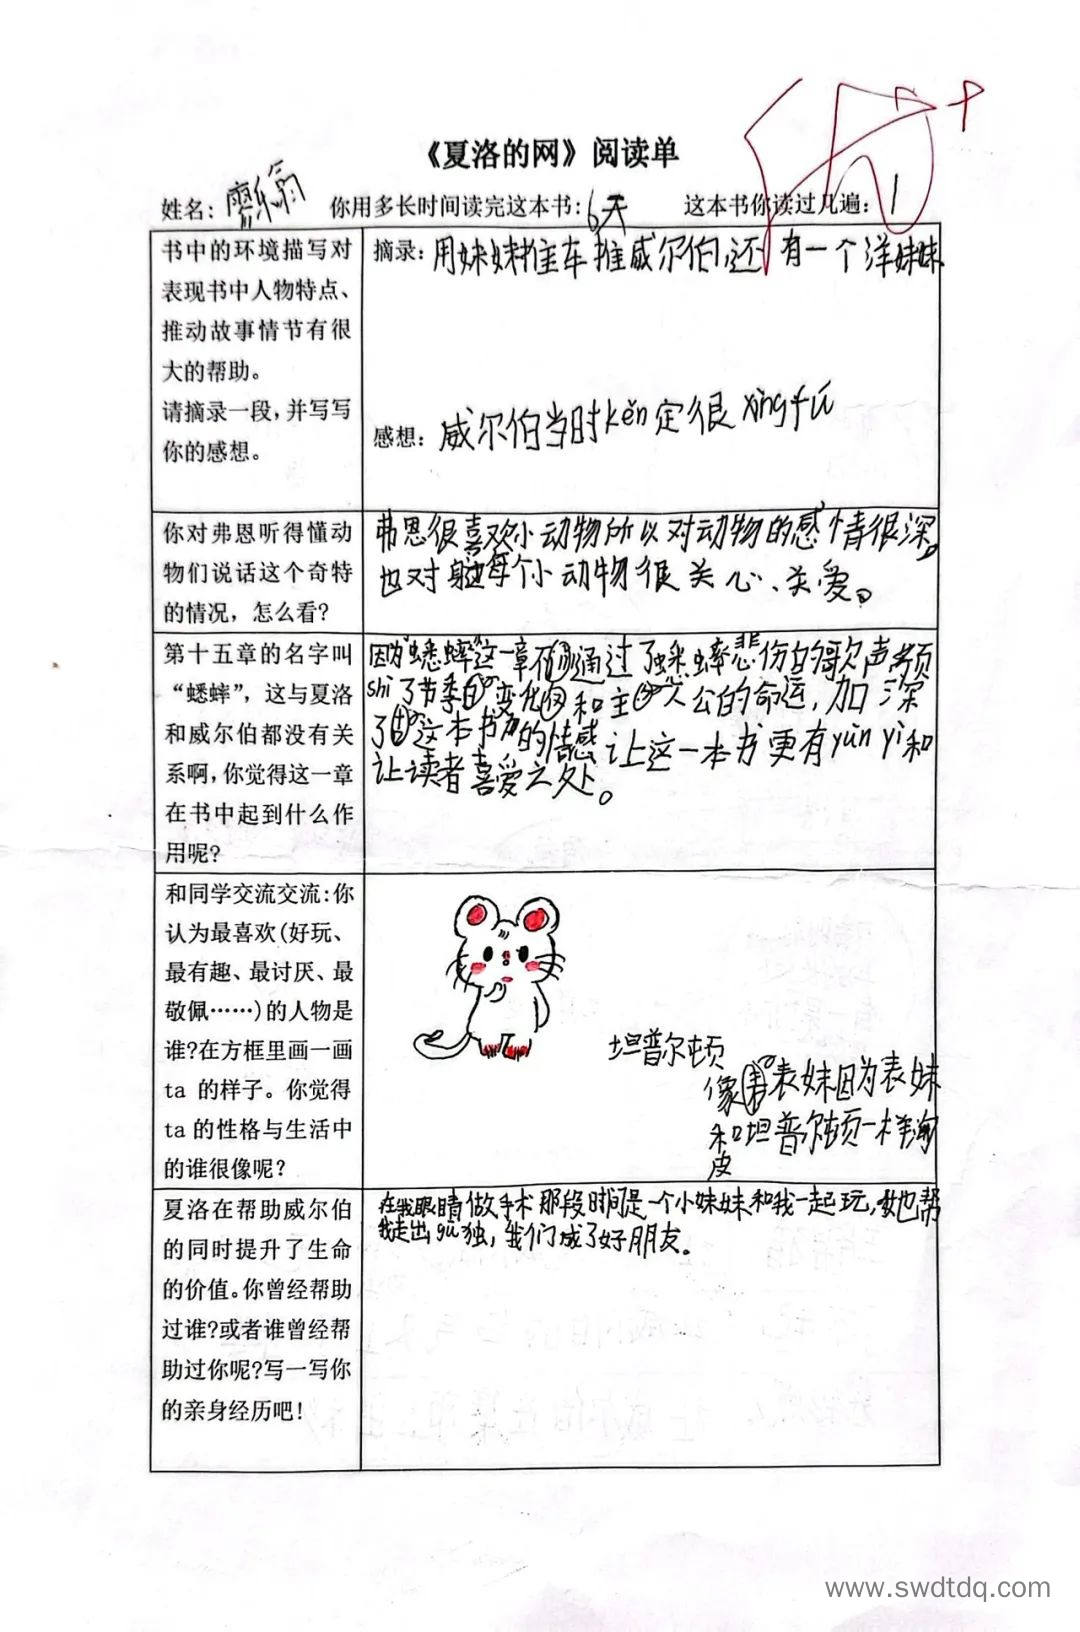 《夏洛的网》阅读单
姓名: 你用多长时间读完这本书: 6天 这本书你读过几遍: 1
书中的环境描写对
表现书中人物特点、
推动故事情节有很
大的帮助。
请摘录一段,并写写
你的感想。
摘录: 用妹妹推车推威尔伯,还有一个洋妹妹
感想: 威尔伯当时kěn定很xìngfú
你对弗恩听得懂动
物们说话这个奇特
的情况,怎么看?
弗恩很喜欢小动物所以对动物的感情很深,
也对每个小动物很关心、关爱。
第十五章的名字叫
“蟋蟀”,这与夏洛
和威尔伯都没有关
系啊,你觉得这一章
在书中起到什么作
用呢?
因为“蟋蟀”这一章通过了蟋蟀悲伤的歌声预
shì了节季变化和主人公的命运,加深
了这本书的情感让这一本书更有yùn yì和
让读者喜爱之处。
和同学交流交流:你
认为最喜欢(好玩、
最有趣、最讨厌、最
敬佩……)的人物是
谁?在方框里画一画
ta 的样子。你觉得
ta 的性格与生活中
的谁很像呢?
坦普尔顿
像表妹因为表妹
和坦普尔顿一样淘
皮
夏洛在帮助威尔伯
的同时提升了生命
的价值。你曾经帮助
过谁?或者谁曾经帮
助过你呢?写一写你
的亲身经历吧!
在我眼睛做手术那段时间是一个小妹妹和我一起玩,她也帮
我走出gū独,我们成了好朋友。
www.swdtdq.com